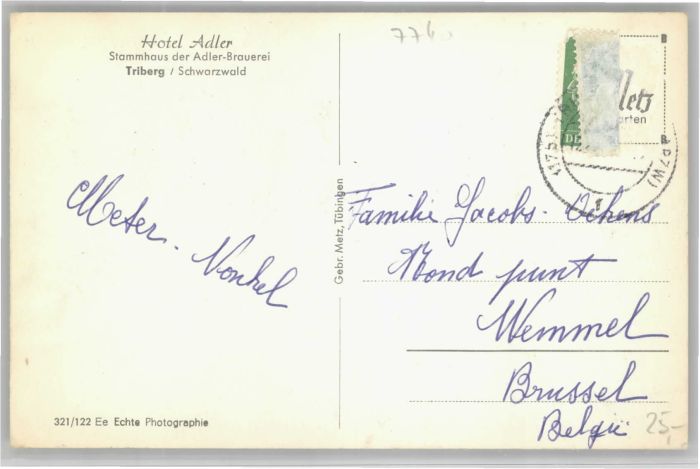 Hotel Adler
Stammhaus der Adler-Brauerei
Triberg / Schwarzwald
776
Metz
arten
B
B
DE
(17b)
Meter - Nonkel
Gebr. Metz, Tübingen
Familie Jacobs - Ockens
Rond punt
Wemmel
Brussel
België
25,-
321/122 Ee Echte Photographie